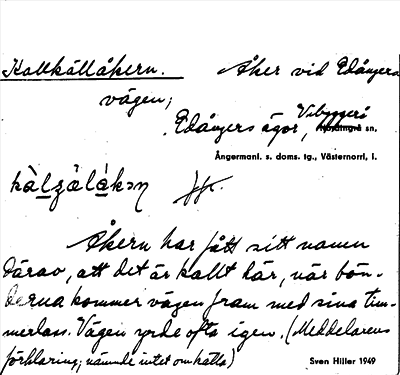 Kallkällåkern. Åker vid Edångers
vägen;
Edångers ägor, Vibyggerå sn.
Ångermanl. s. doms. tg., Västernorrl. l.
Åkern har fått sitt namn
därav, att det är kallt här, när bön-
derna kommer vägen fram med sina tim-
merlass. Vägen yrde ofta igen. (Meddelarens
förklaring; nämnde intet om källa)
Sven Hiller 1949